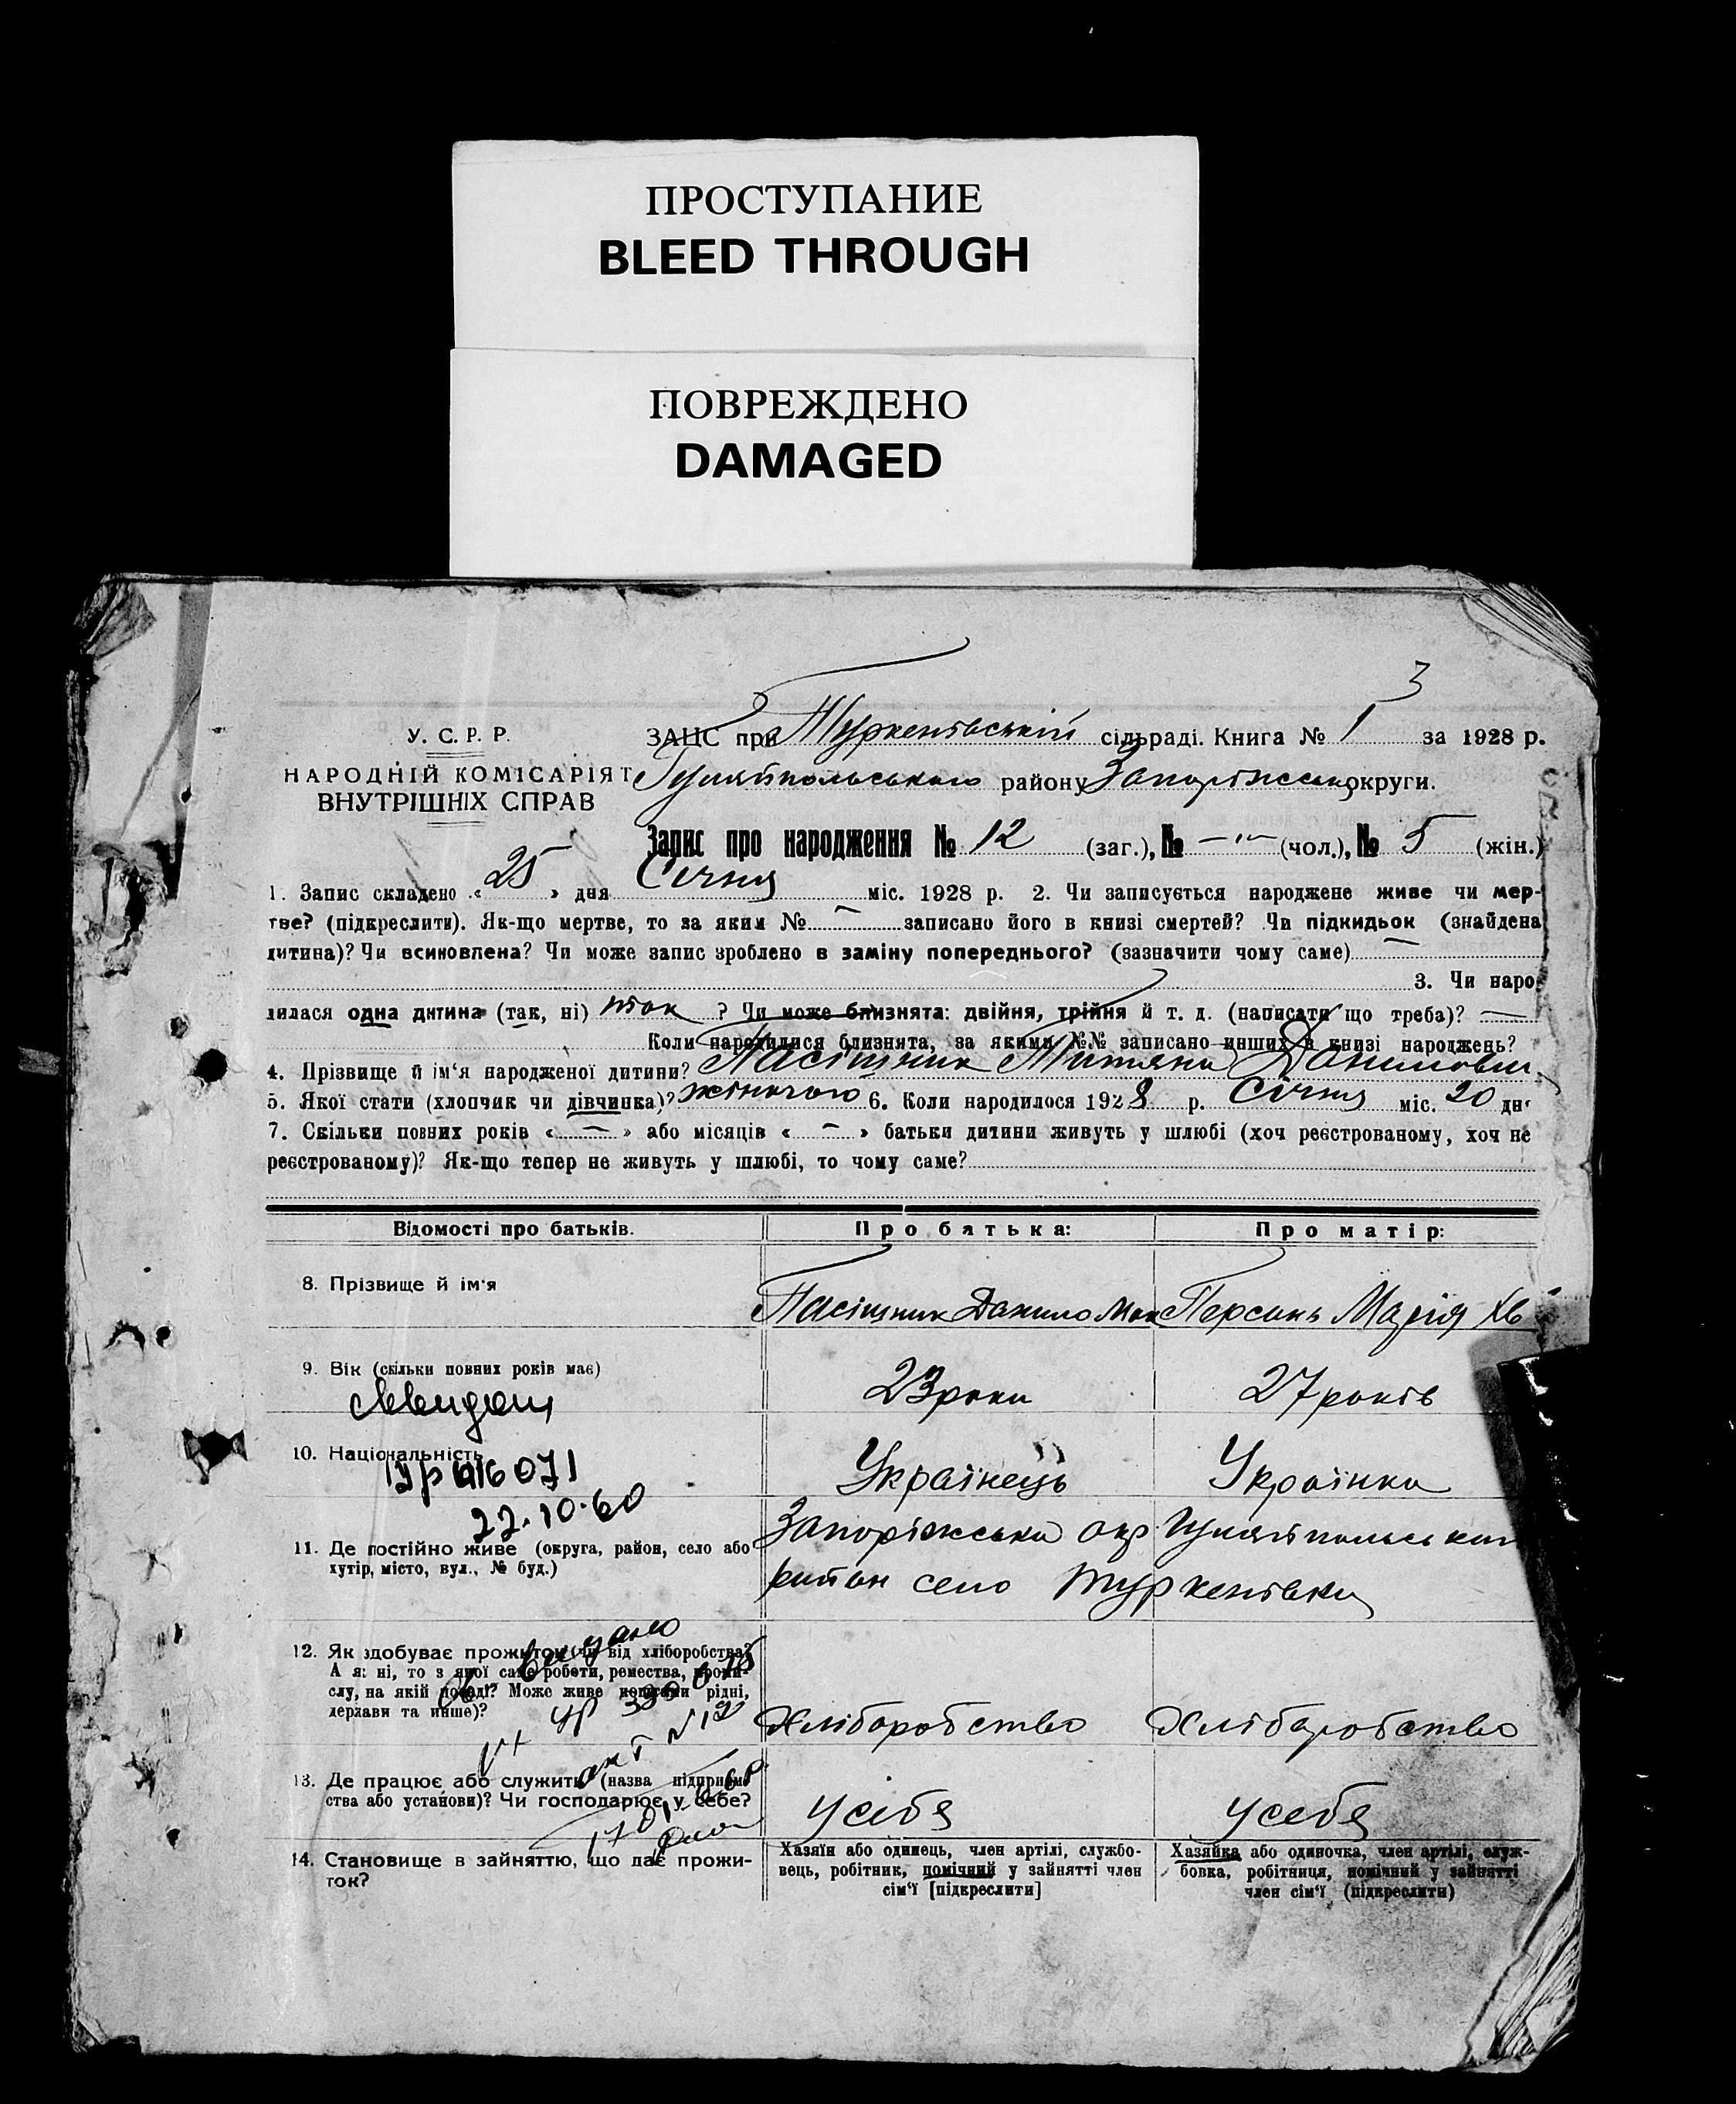 ПРОСТУПАНИЕ
BLEED THROUGH
ПОВРЕЖДЕНО
DAMAGED
3
У. С. Р. Р.
НАРОДНІЙ КОМІСАРІЯТ
ВНУТРІШНІХ СПРАВ
ЗАЦС при Туркенівській сільраді. Книга № 1 за 1928 р.
Гуляйпольського району Запоріжської округи.
Запис про народження № 12 (заг.), № — (чол.), № 5 (жін.)
1. Запис складено « 25 » дня Січня міс. 1928 р. 2. Чи записується народжене живе чи мер-
тве? (підкреслити). Як-що мертве, то за яким № — записано його в книзі смертей? Чи підкидьок (знайдена
дитина)? Чи всиновлена? Чи може запис зроблено в заміну попереднього? (зазначити чому саме) —
3. Чи наро-
дилася одна дитина (так, ні) так ? Чи може близнята: двійня, трійня й т. д. (написати що треба)? —
Коли народилися близнята, за якими №№ записано инших в книзі народжень?
4. Прізвище й ім'я народженої дитини? Пасішник Титяна Даниловн.
5. Якої стати (хлопчик чи дівчинка)? жіночого 6. Коли народилося 1928 р. Січня міс. 20 дн
7. Скільки повних років « — » або місяців « — » батьки дитини живуть у шлюбі (хоч реєстрованому, хоч не
реєстрованому)? Як-що тепер не живуть у шлюбі, то чому саме?
Відомості про батьків. Про батька: Про матір:
8. Прізвище й ім'я Пасішник Данило Мак Персань Марія Хв
9. Вік (скільки повних років має) 23 роки 27 років
10. Національність Українець Українка
22.10.60
11. Де постійно живе (округа, район, село або
хутір, місто, вул., № буд.)
Запоріжська окр Гуляйпольський
район село Туркенівка
12. Як здобуває прожиток: чи від хліборобства?
А як ні, то з якої саме роботи, ремества, проми-
слу, на якій посаді? Може живе коштами рідні,
держави та инше)?
Хліборобство Хліборобство
видано
13. Де працює або служить (назва підприєм-
ства або установи)? Чи господарює у себе?
У себя У себя
14. Становище в зайняттю, що дає прожи-
ток?
Хазяїн або одинець, член артілі, службо-
вець, робітник, помічний у зайнятті член
сім'ї [підкреслити]
Хазяйка або одиночка, член артілі, служ-
бовка, робітниця, помічний у зайнятті
член сім'ї (підкреслити)